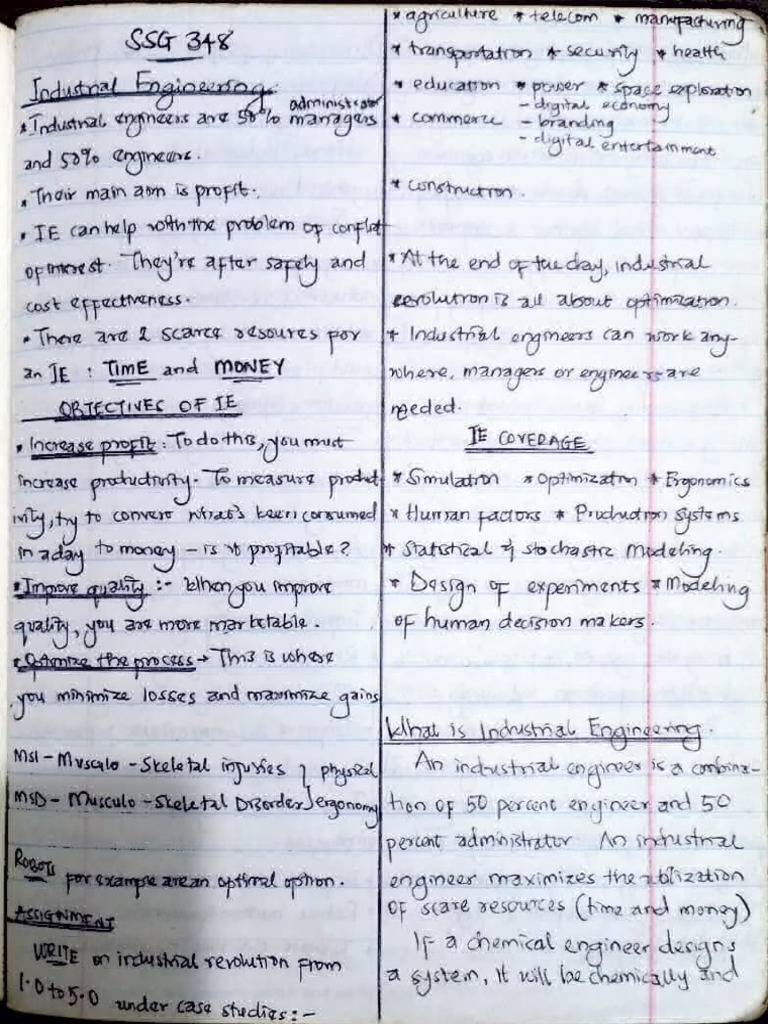 SSG 348
Industrial Engineering
administrator
• Industrial engineers are 50% managers
and 50% engineers.
• Their main aim is profit.
• IE can help with the problem of conflict
of interest. They're after safety and
cost effectiveness.
• There are 2 scarce resources for
an IE : TIME and MONEY
OBJECTIVES OF IE
• Increase profit : To do this, you must
increase productivity. To measure product-
ivity, try to convert what's been consumed
in a day to money – is it profitable?
• Improve quality :- When you improve
quality, you are more marketable.
• Optimize the process → This is where
you minimize losses and maximize gains
MSI - Musculo - Skeletal injuries } physical
MSD - Musculo - Skeletal Disorder } ergonomy
ROBOTS for example are an optimal option.
ASSIGNMENT
WRITE on industrial revolution from
1.0 to 5.0 under case studies :-
* agriculture * telecom * manufacturing
* transportation * security * health
* education * power * space exploration
- digital economy
* commerce - branding
- digital entertainment
* construction.
* At the end of the day, industrial
revolution is all about optimization.
* Industrial engineers can work any-
where, managers or engineers are
needed.
IE COVERAGE
* Simulation * Optimization * Ergonomics
* Human factors * Production systems
* Statistical & stochastic Modeling.
* Design of experiments * Modeling
of human decision makers.
What is Industrial Engineering.
An industrial engineer is a combina-
tion of 50 percent engineer and 50
percent administrator. An industrial
engineer maximizes the utilization
of scare resources (time and money)
If a chemical engineer designs
a system, it will be chemically and